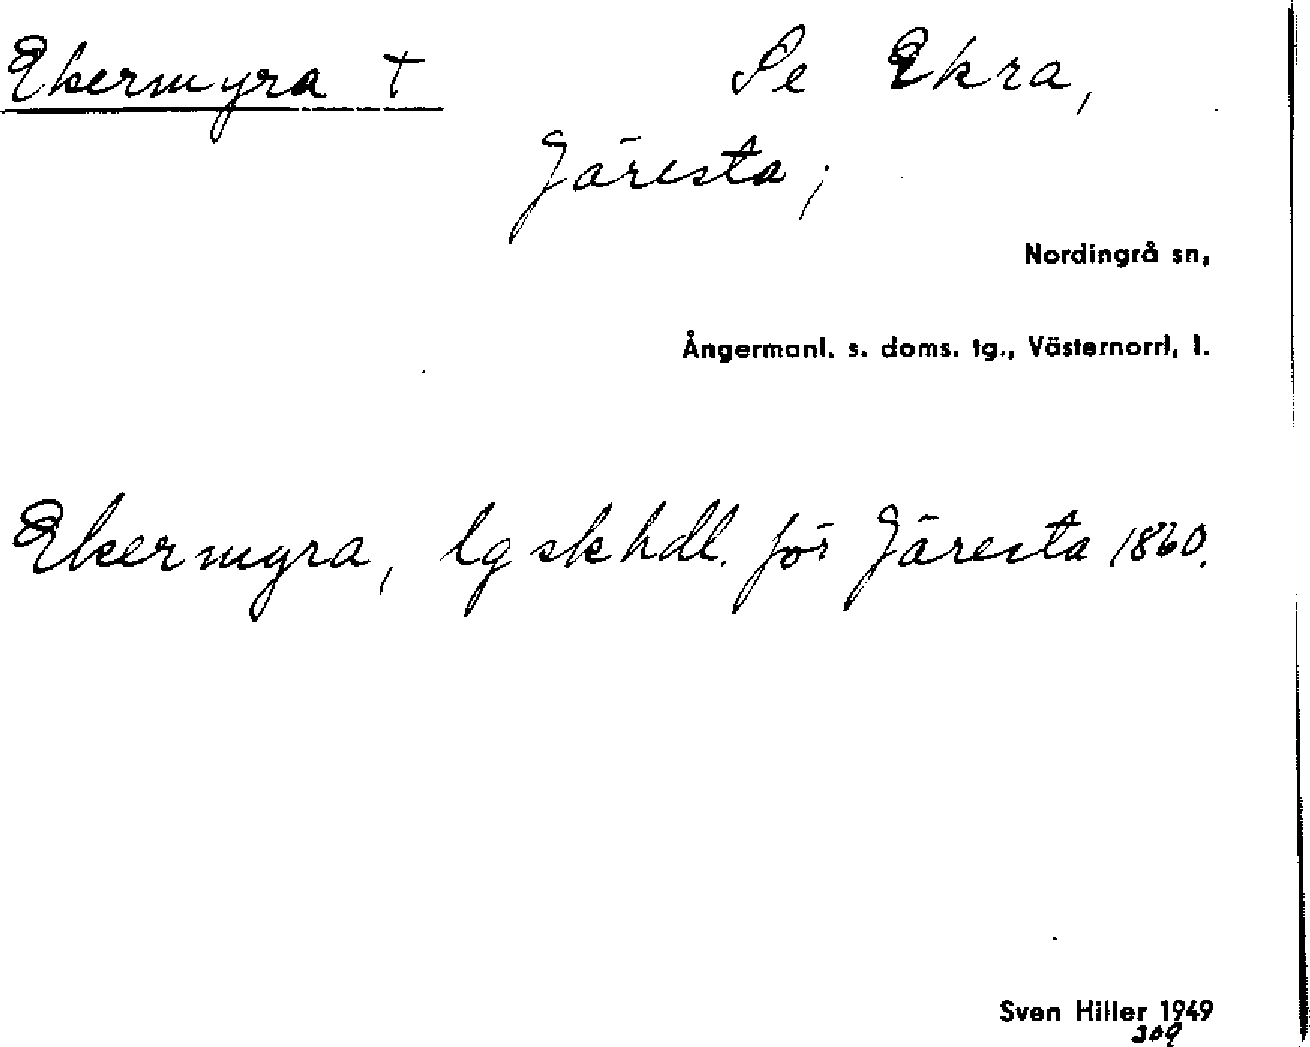 Ekermyra † Se Ekra,
Järesta;
Nordingrå sn,
Ångermanl. s. doms. tg., Västernorrl. l.
Ekermyra, lg skhdl. för Järesta 1860.
Sven Hiller 1949
309